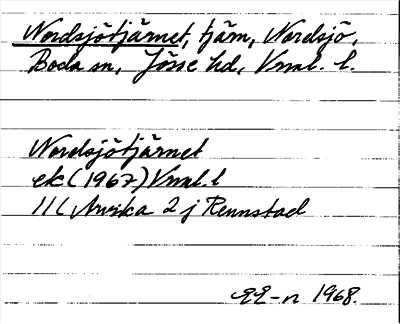 Nordsjötjärnet, tjärn, Nordsjö,
Boda sn, Jösse hd, Vrml. l.
Nordsjötjärnet
ek (1967) Vrml. l
11C Arvika 2 j Rennstad
1968.